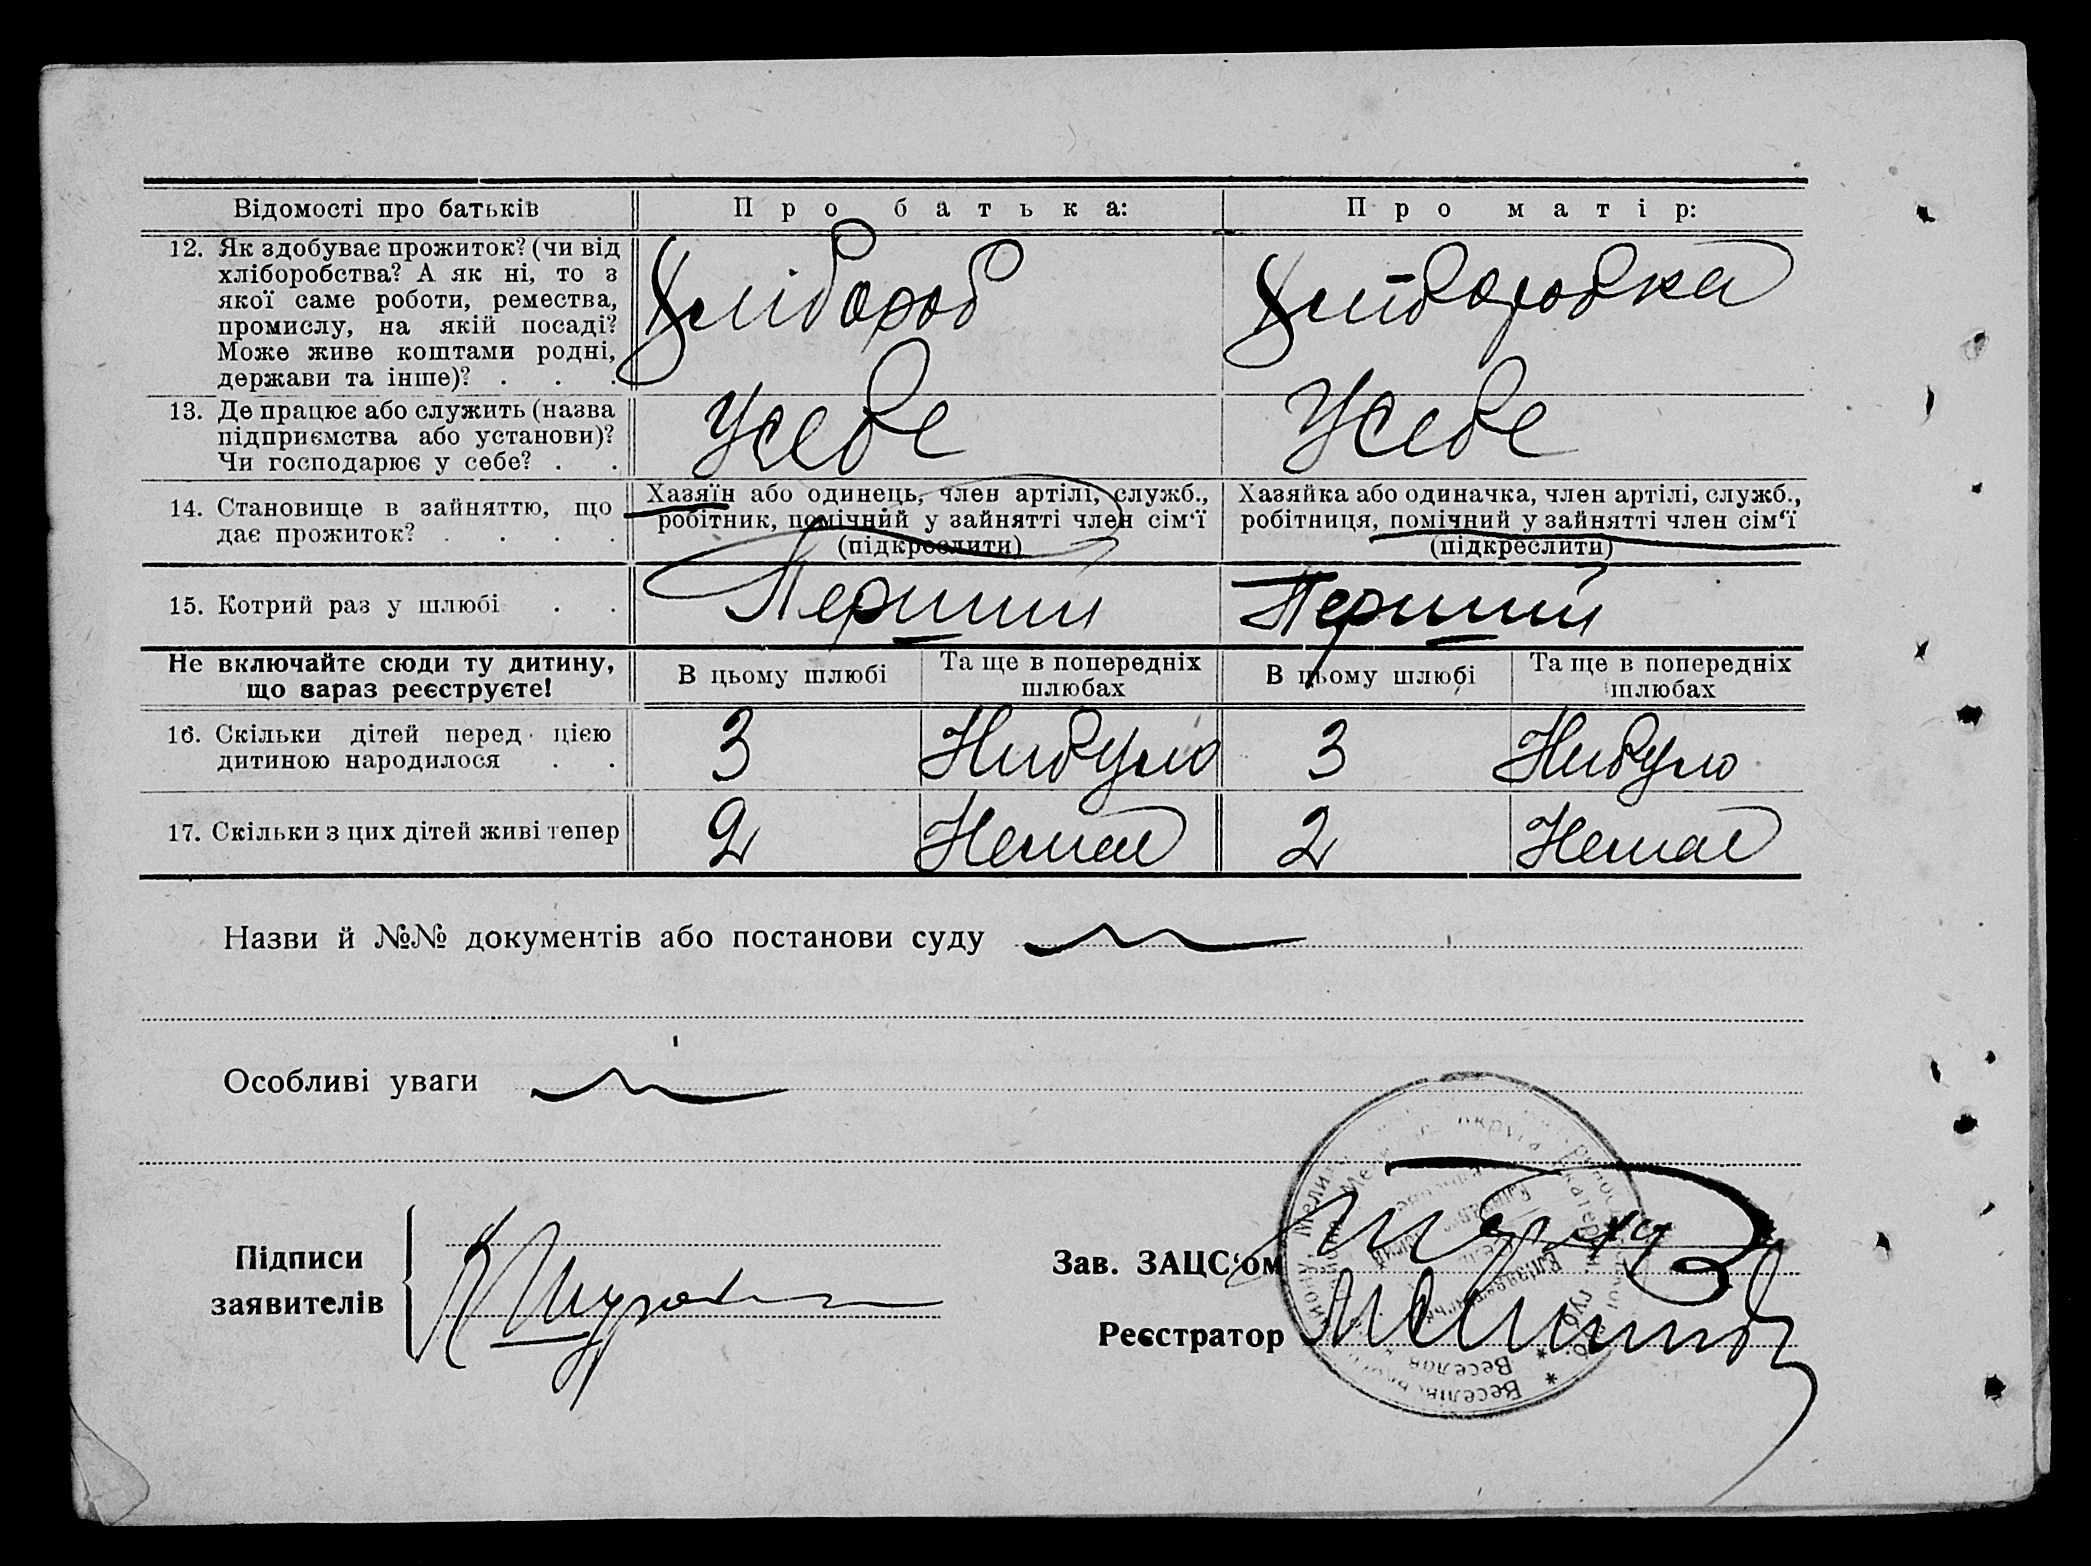 Відомості про батьків
Про батька:
Про матір:
12. Як здобуває прожиток? (чи від
хліборобства? А як ні, то з
якої саме роботи, ремества,
промислу, на якій посаді?
Може живе коштами родні,
держави та інше)? . . .
Хлібороб
Хліборобка
13. Де працює або служить (назва
підприємства або установи)?
Чи господарює у себе? . .
Усебе
Усебе
14. Становище в зайняттю, що
дає прожиток? . . . .
Хазяїн або одинець, член артілі, служб.,
робітник, помічний у зайнятті член сім‘ї
(підкреслити)
Хазяйка або одиначка, член артілі, служб.,
робітниця, помічний у зайнятті член сім‘ї
(підкреслити)
15. Котрий раз у шлюбі . .
Перший
Перший
Не включайте сюди ту дитину,
що вараз реєструєте!
В цьому шлюбі
Та ще в попередніх
шлюбах
В цьому шлюбі
Та ще в попередніх
шлюбах
16. Скільки дітей перед цією
дитиною народилося . .
3
Нибуло
3
Нибуло
17. Скільки з цих дітей живі тепер
2
Немає
2
Немає
Назви й №№ документів або постанови суду
Особливі уваги
Підписи
заявителів
Зав. ЗАЦС‘ом
Реєстратор
округа
губ.